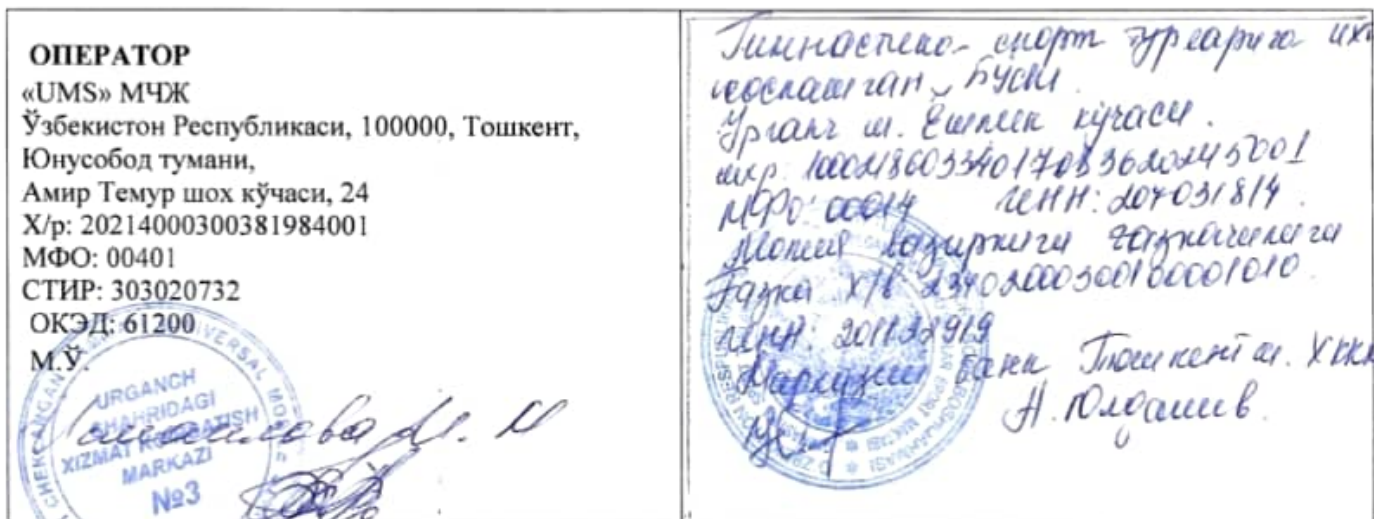 ОПЕРАТОР
«UMS» МЧЖ
Ўзбекистон Республикаси, 100000, Тошкент,
Юнусобод тумани,
Амир Темур шох кўчаси, 24
Х/р: 20214000300381984001
МФО: 00401
СТИР: 303020732
ОКЭД: 61200
М.Ў.
URGANCH
SHAHRIDAGI
XIZMAT KO'RSATISH
MARKAZI
№3
Гимнастика спорт турларига их
сослашган БЎСМ
Урганч ш. Ёшлик кўчаси.
МФО: 00014
Молия вазирлиги газначилиги
Ғазна х/в 23402000300100001010
ИНН: 201132919
Марказий банк Тошкент ш. ХККМ
Н. Юлдашев.